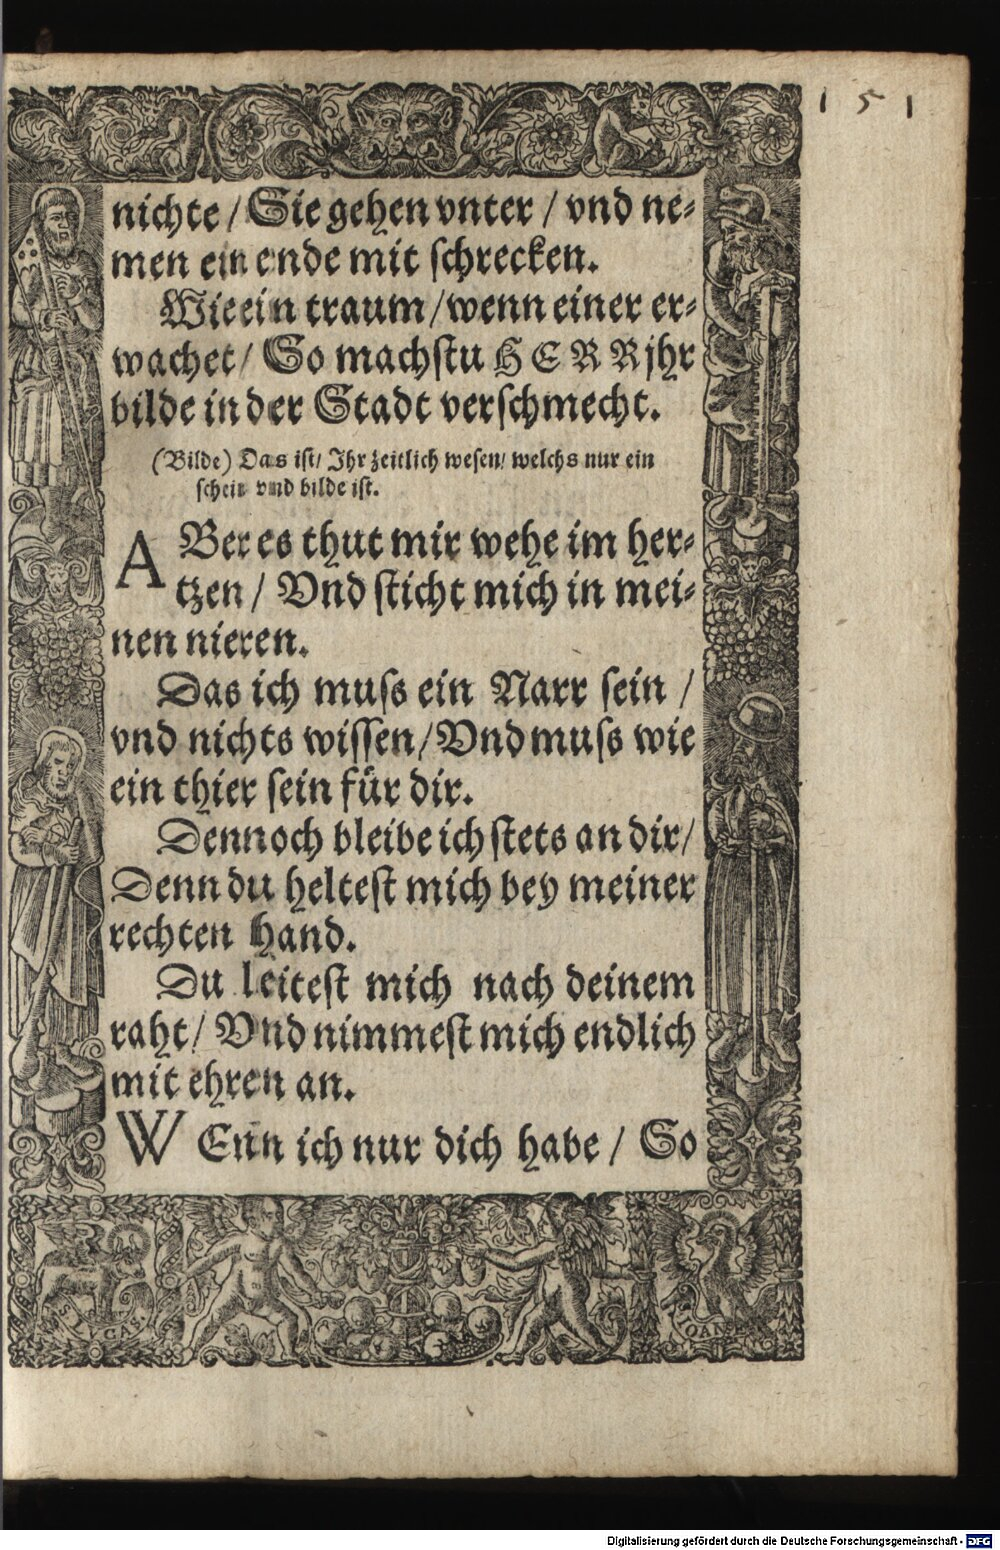 151
nichte / Sie gehen vnter / vnd ne⸗
men ein ende mit schrecken.
Wie ein traum / wenn einer er⸗
wachet / So machstu HERR jhr
bilde in der Stadt verschmecht.
(Bilde) Das ist / Jhr zeitlich wesen / welchs nur ein
schein vnd bilde ist.
ABer es thut mir wehe im her⸗
tzen / Vnd sticht mich in mei⸗
nen nieren.
Das ich muss ein Narr sein /
vnd nichts wissen / Vnd muss wie
ein thier sein für dir.
Dennoch bleibe ich stets an dir /
Denn du heltest mich bey meiner
rechten hand.
Du leitest mich nach deinem
raht / Vnd nimmest mich endlich
mit ehren an.
WEnn ich nur dich habe / So
S. LVCAS.
IOAN
Digitalisierung gefördert durch die Deutsche Forschungsgemeinschaft - DFG